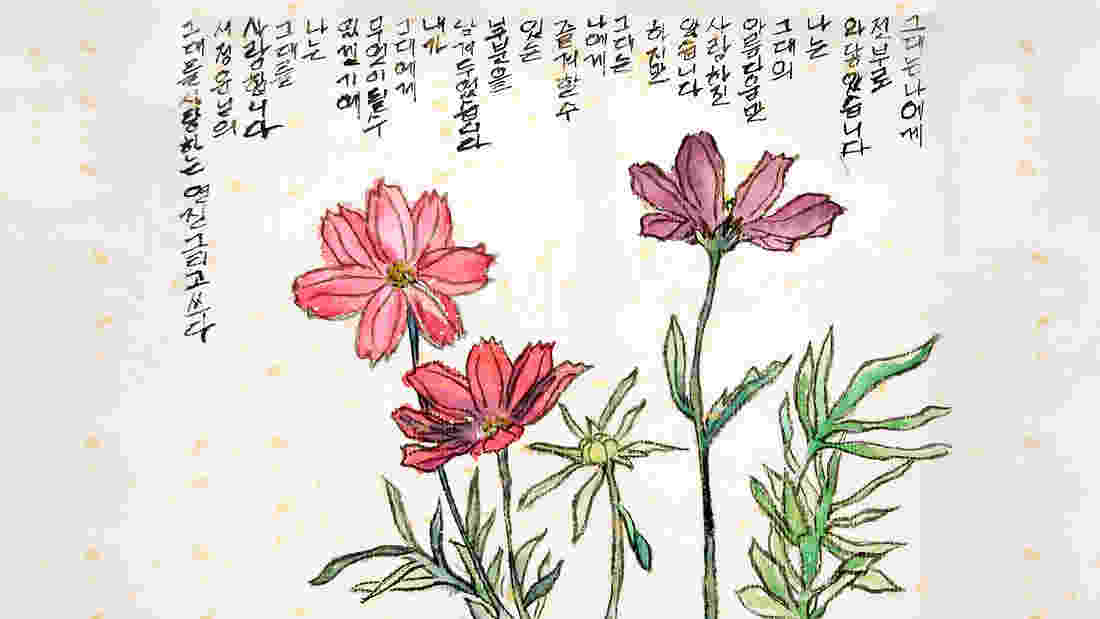 그대는 나에게
전부로
와 닿았습니다
나는
그대의
아름다움만
사랑하진
않습니다
하지만
그대는
나에게
즐겨할 수
있는
부분을
남겨두었습니다
내가
그대에게
무엇이 될 수
있겠기에
나는
그대를
사랑합니다
서정윤님의
그대를 사랑하는 연진 그리고 쓰다